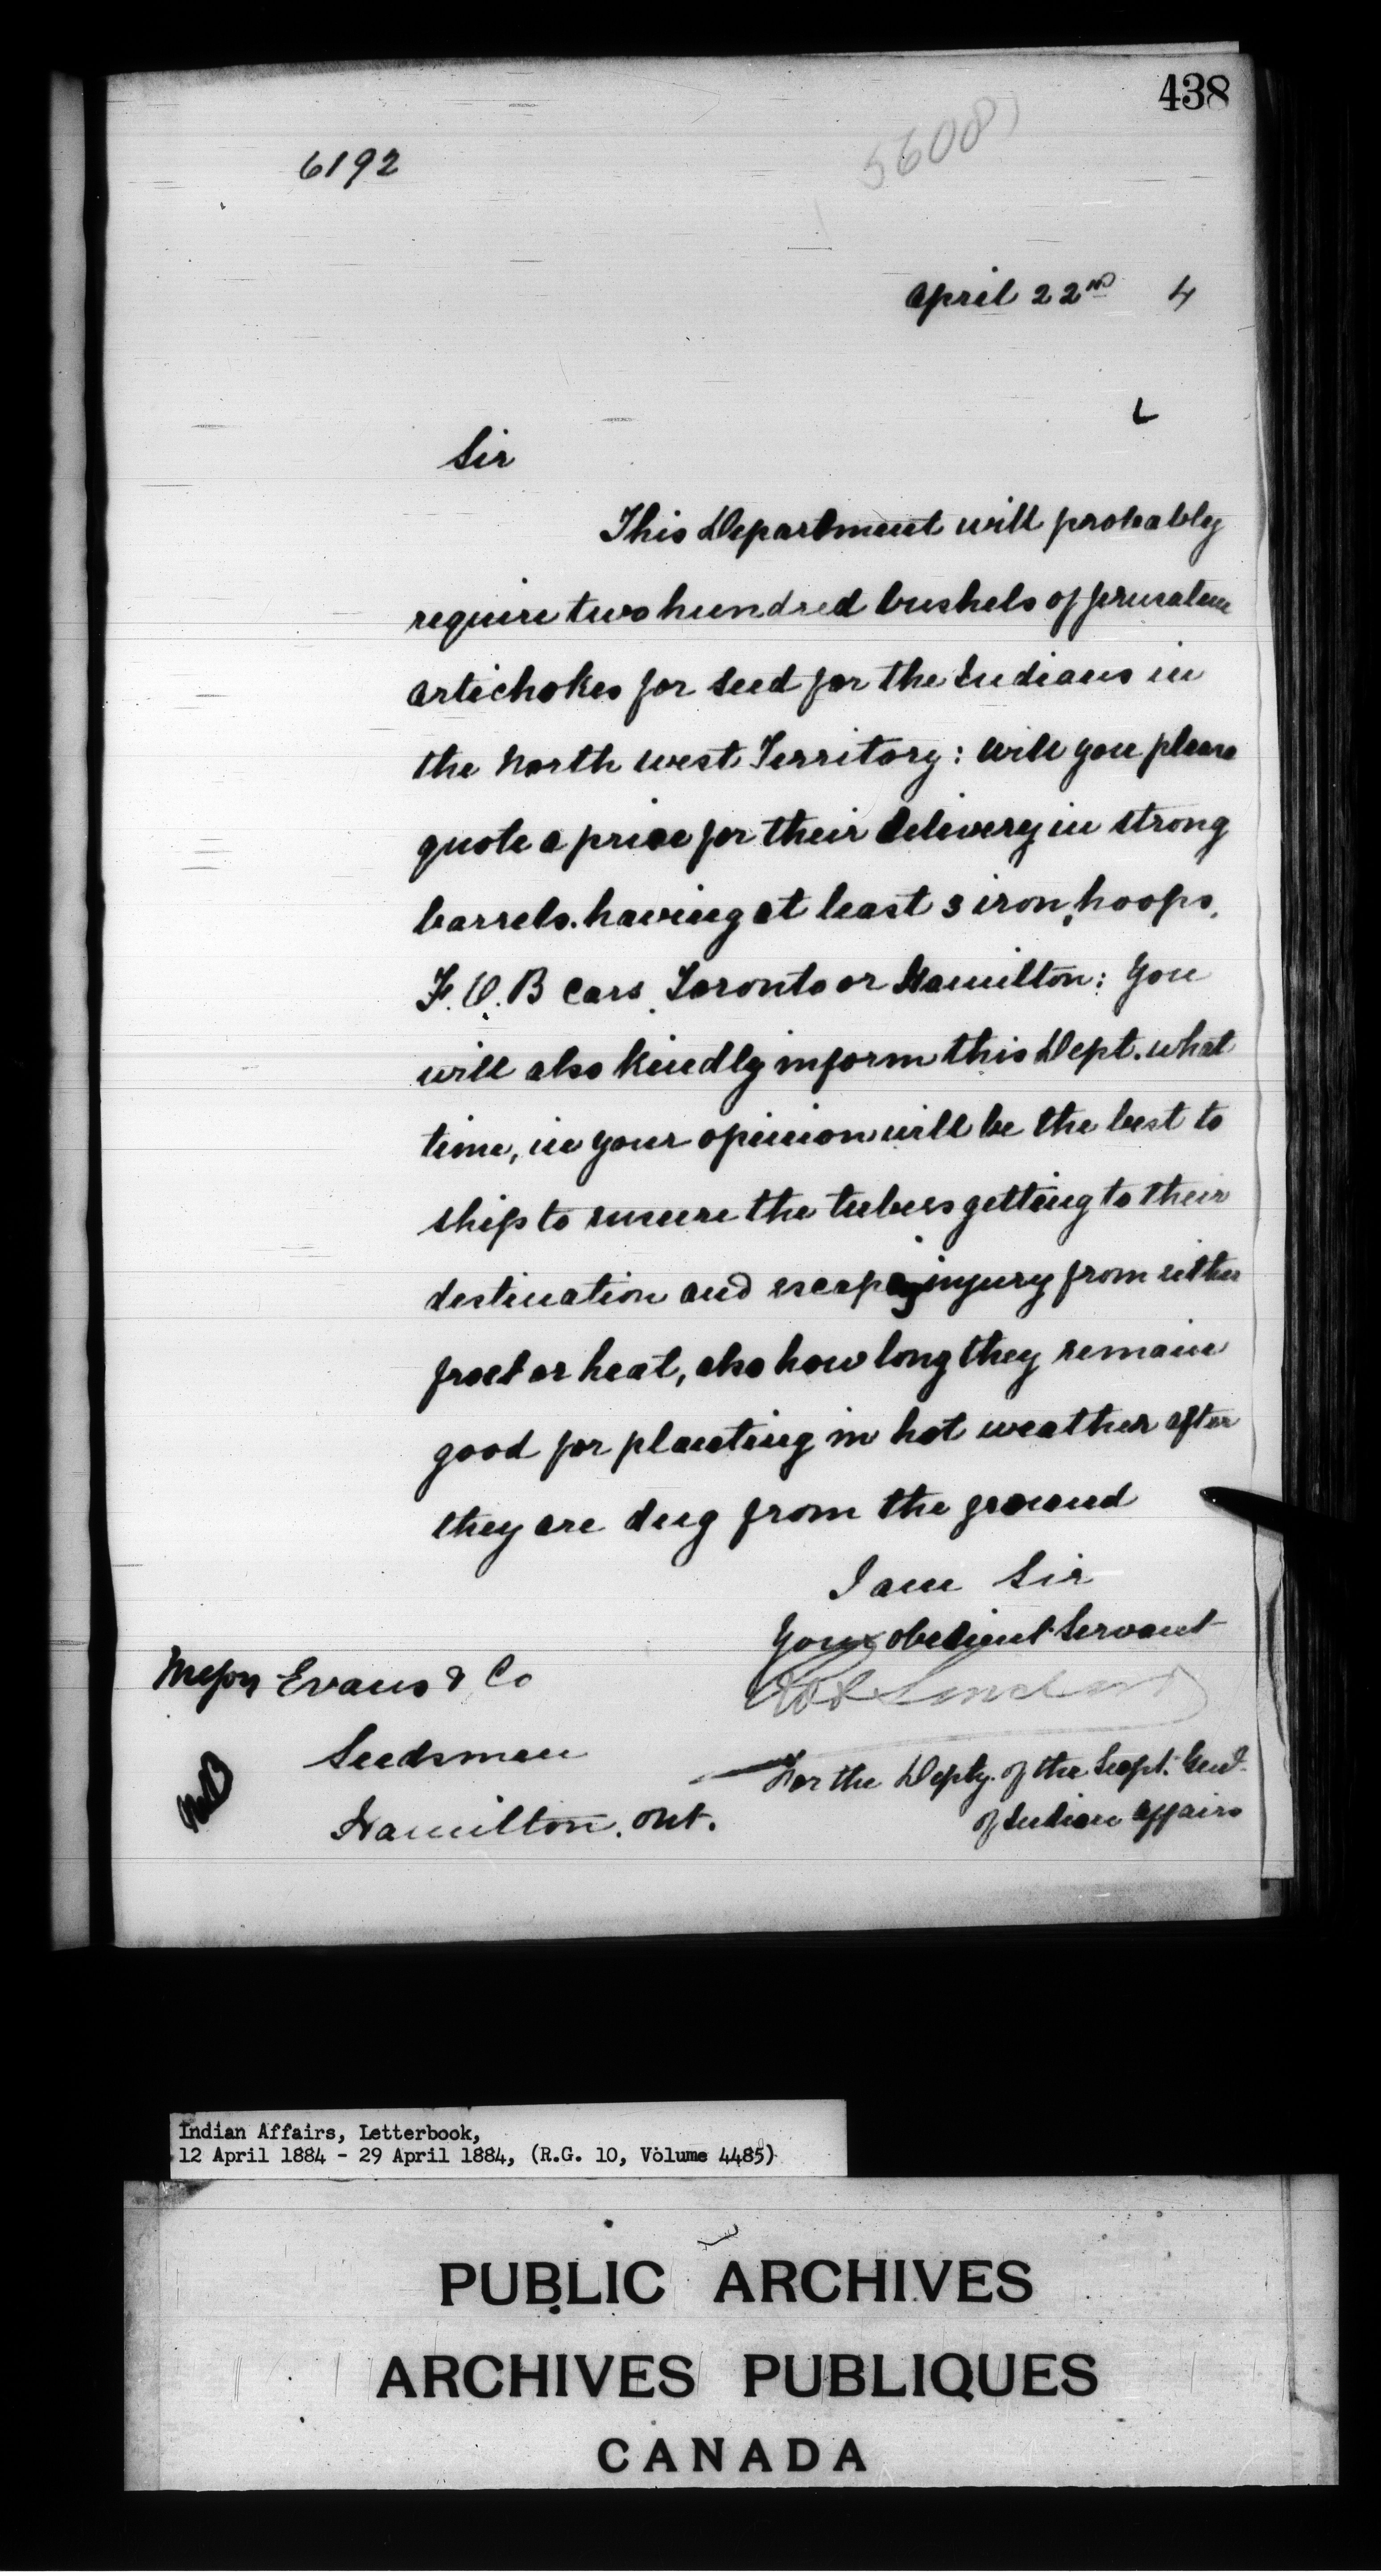 438
6192
56081
April 22nd 4
Sir
This Department will probably
require two hundred bushels of Jerusalem
artichokes for seed for the Indians in
the North west Territory: Will you please
quote a price for their delivery in strong
barrels. having at least 3 iron hoops,
F. O. B Cars. Toronto or Hamilton: You
will also kindly inform this Dept. what
time, in your opinion will be the best to
ship to ensure the tubers getting to their
destination and escape injury from either
frost or heat, also how long they remain
good for planting in hot weather after
they are dug from the ground
I am Sir
Your obedient Servant
Messrs Evans & Co
Seedsmen
For the Depty. of the Supt. Genl.
Hamilton. Ont.
of Indian Affairs
Indian Affairs, Letterbook,
12 April 1884 - 29 April 1884, (R.G. 10, Volume 4485)
PUBLIC ARCHIVES
ARCHIVES PUBLIQUES
CANADA